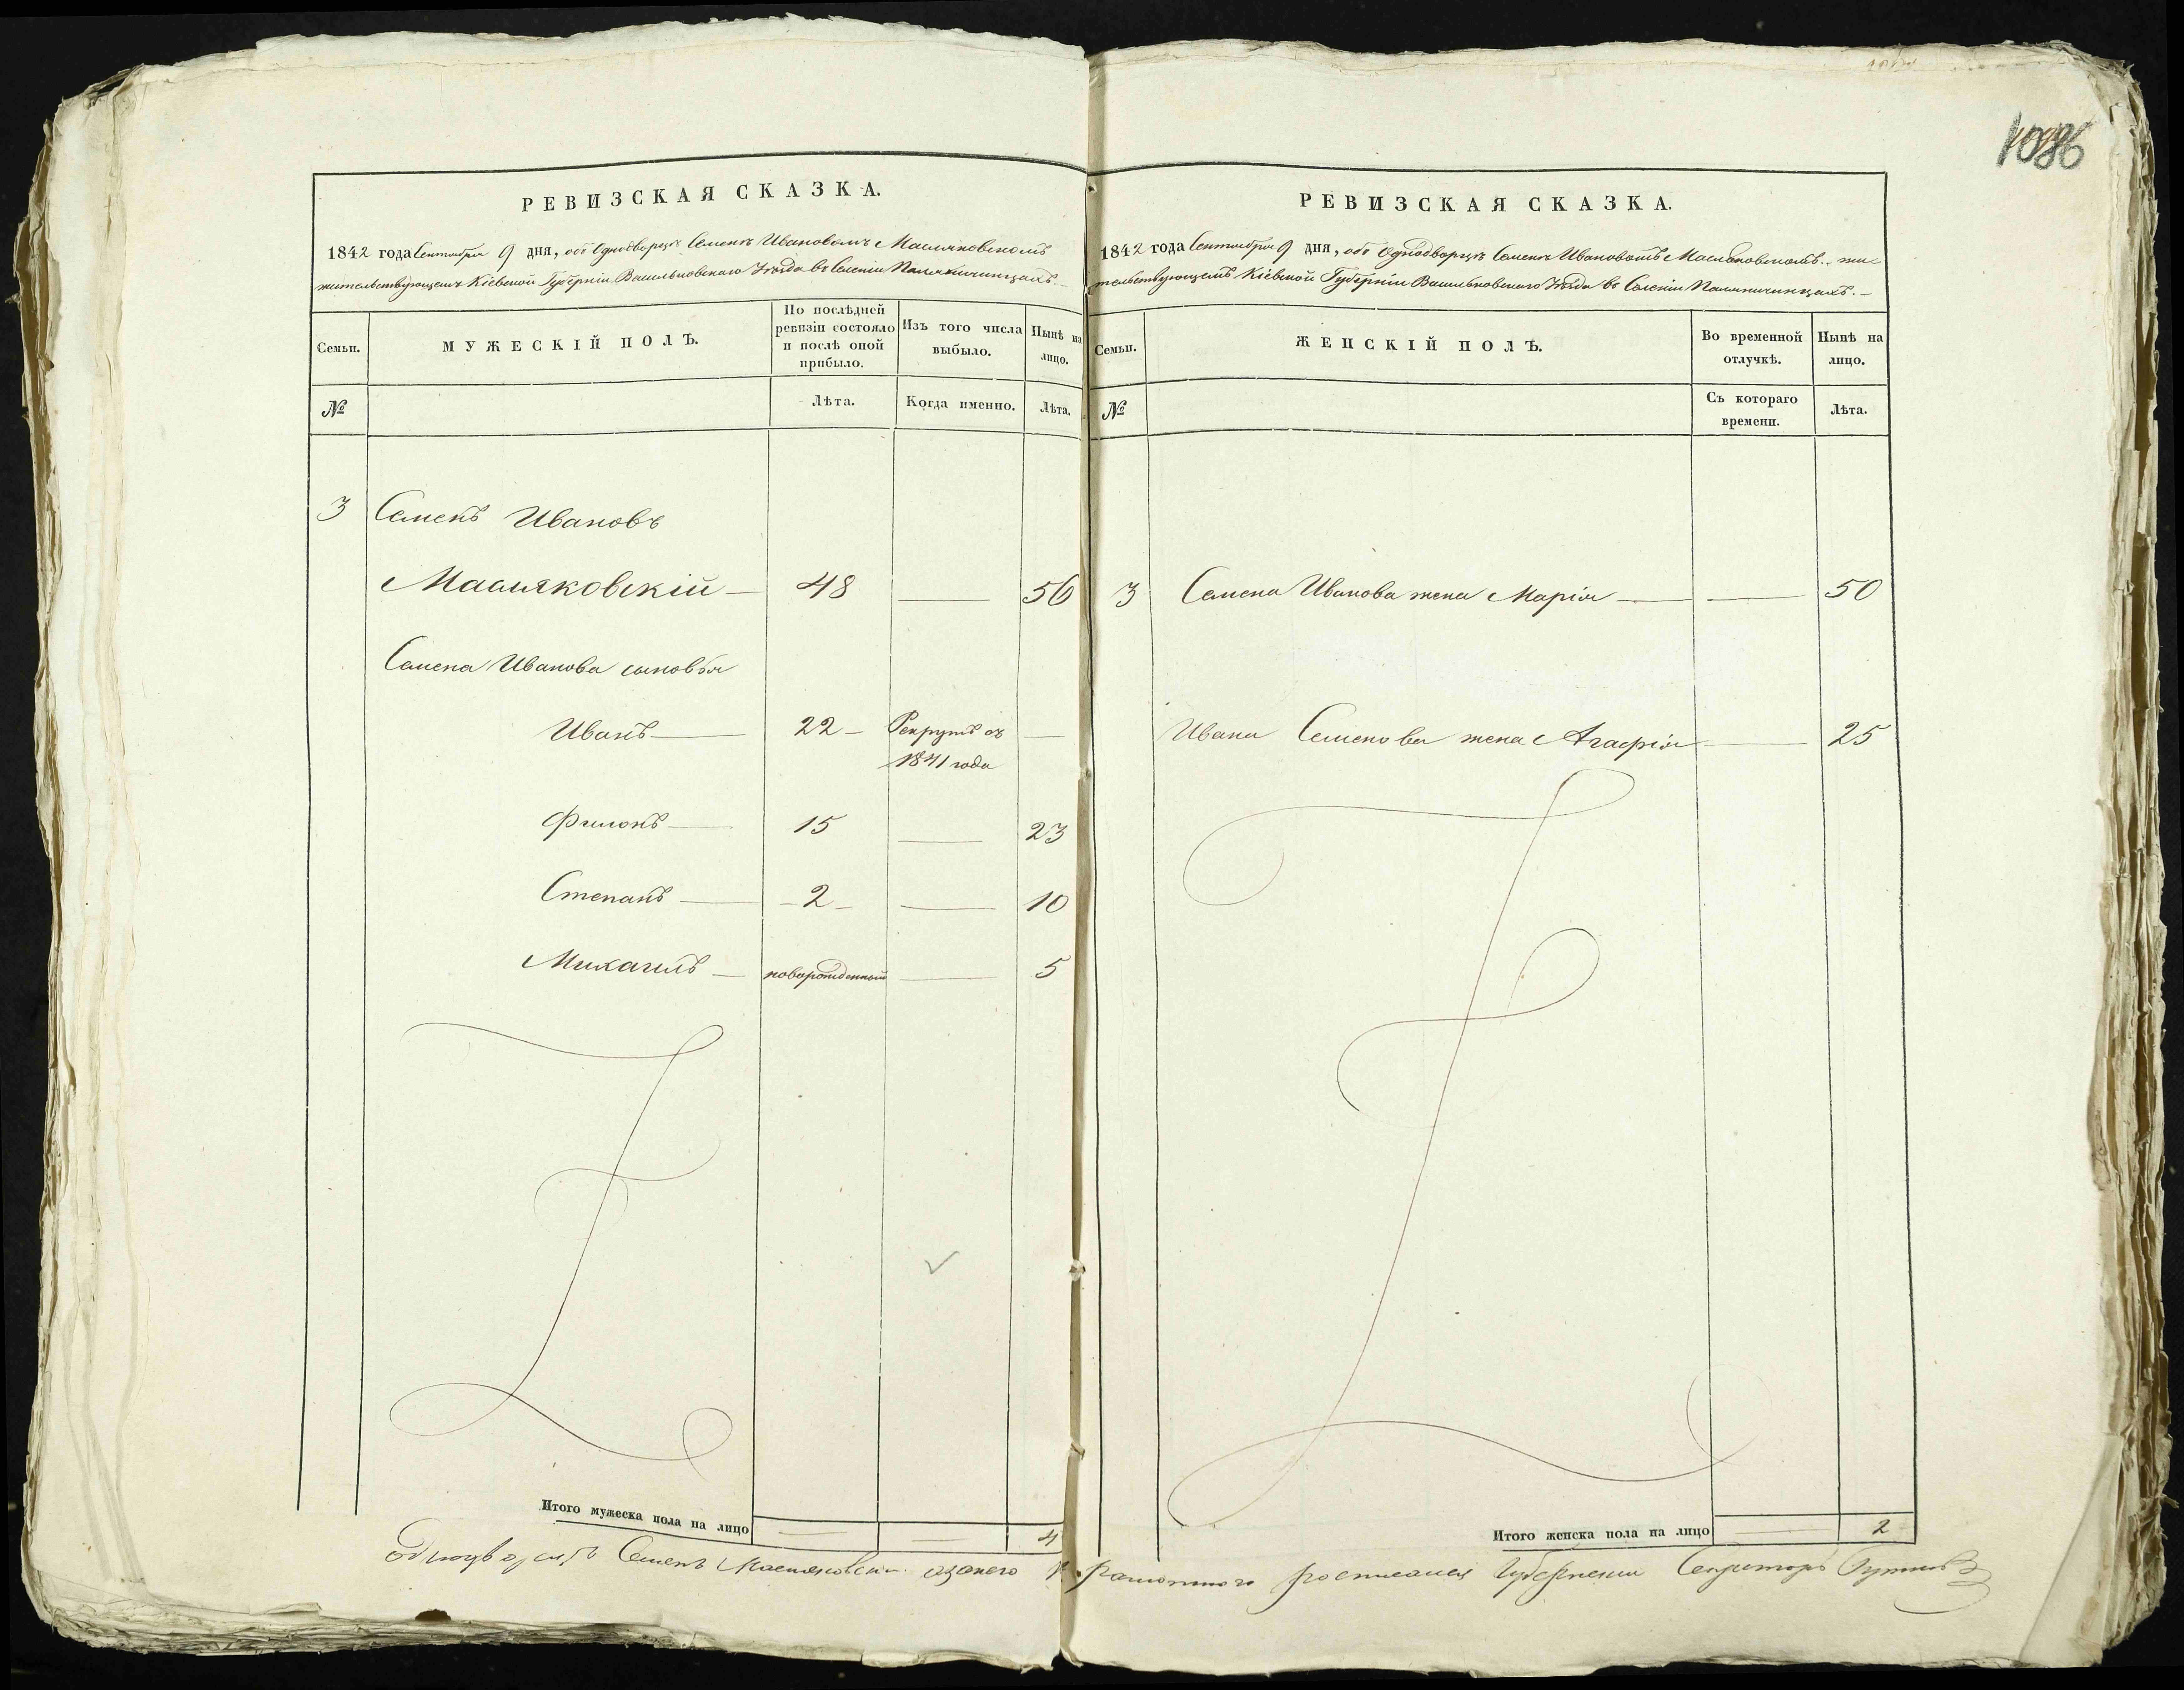 1086
РЕВИЗСКАЯ СКАЗКА.
1842 года Сентября 9 дня, объ Однодворцѣ Семенѣ Ивановомъ Масляковскомъ
жительствующемъ Кіевской Губерніи Васильковскаго Уѣзда въ Селеніи Паляничинцахъ.
Семьи.
МУЖЕСКІЙ ПОЛЪ.
По послѣдней
ревизіи состояло
и послѣ оной
прибыло.
Изъ того числа
выбыло.
Нынѣ на
лицо.
№
Лѣта.
Когда именно.
Лѣта.
3 Семенъ Ивановъ
Масляковскій — 48 — 56
Семена Иванова сыновья
Иванъ — 22 — Рекрутъ съ —
1841 года
Филонъ — 15 — 23
Степанъ — 2 — 10
Михаилъ — новорожденный — 5
Итого мужеска пола на лицо — — 4
РЕВИЗСКАЯ СКАЗКА.
1842 года Сентября 9 дня, объ Однодворцѣ Семенѣ Ивановомъ Масляковскомъ. жи-
тельствующемъ Кіевской Губерніи Васильковскаго Уѣзда въ Селеніи Паляничинцахъ.
Семьи.
ЖЕНСКІЙ ПОЛЪ.
Во временной
отлучкѣ.
Нынѣ на
лицо.
№
Съ котораго
времени.
Лѣта.
3 Семена Иванова жена Марія — — 50
Ивана Семенова жена Агафія — 25
Итого женска пола на лицо — 2
однодворецъ Семенъ Масляковский росписался Губернский Секретарь